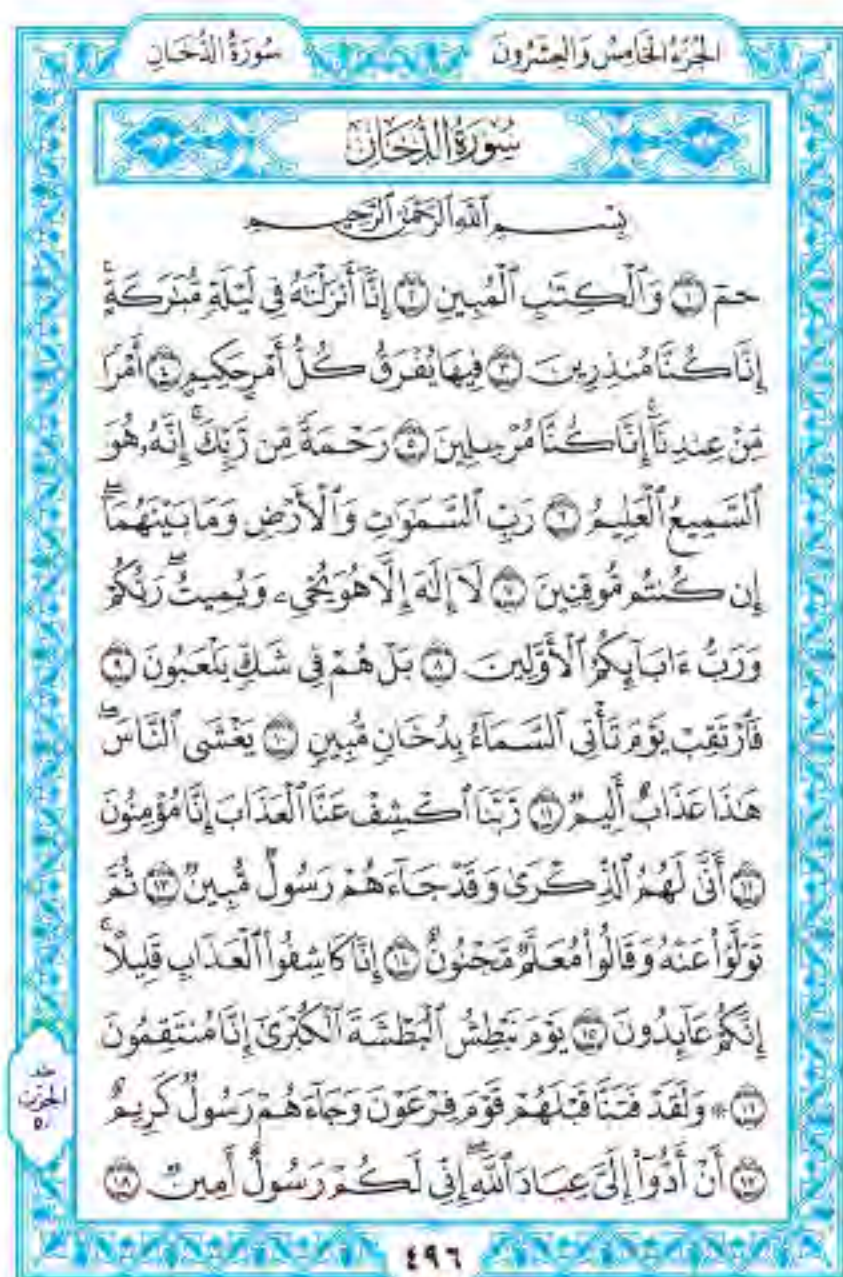 الجُزْءُ الخَامِسُ وَالعِشْرُونَ
سُورَةُ الدُّخَانِ
سُورَةُ الدُّخَانِ
بِسْمِ ٱللَّهِ ٱلرَّحْمَٰنِ ٱلرَّحِيمِ
حمٓ ۝١ وَٱلْكِتَٰبِ ٱلْمُبِينِ ۝٢ إِنَّآ أَنزَلْنَٰهُ فِى لَيْلَةٍ مُّبَٰرَكَةٍ ۚ
إِنَّا كُنَّا مُنذِرِينَ ۝٣ فِيهَا يُفْرَقُ كُلُّ أَمْرٍ حَكِيمٍ ۝٤ أَمْرًا
مِّنْ عِندِنَآ ۚ إِنَّا كُنَّا مُرْسِلِينَ ۝٥ رَحْمَةً مِّن رَّبِّكَ ۚ إِنَّهُۥ هُوَ
ٱلسَّمِيعُ ٱلْعَلِيمُ ۝٦ رَبِّ ٱلسَّمَٰوَٰتِ وَٱلْأَرْضِ وَمَا بَيْنَهُمَآ ۖ
إِن كُنتُم مُّوقِنِينَ ۝٧ لَآ إِلَٰهَ إِلَّا هُوَ يُحْىِۦ وَيُمِيتُ ۖ رَبُّكُمْ
وَرَبُّ ءَابَآئِكُمُ ٱلْأَوَّلِينَ ۝٨ بَلْ هُمْ فِى شَكٍّ يَلْعَبُونَ ۝٩
فَٱرْتَقِبْ يَوْمَ تَأْتِى ٱلسَّمَآءُ بِدُخَانٍ مُّبِينٍ ۝١٠ يَغْشَى ٱلنَّاسَ ۖ
هَٰذَا عَذَابٌ أَلِيمٌ ۝١١ رَّبَّنَا ٱكْشِفْ عَنَّا ٱلْعَذَابَ إِنَّا مُؤْمِنُونَ
۝١٢ أَنَّىٰ لَهُمُ ٱلذِّكْرَىٰ وَقَدْ جَآءَهُمْ رَسُولٌ مُّبِينٌ ۝١٣ ثُمَّ
تَوَلَّوْا۟ عَنْهُ وَقَالُوا۟ مُعَلَّمٌ مَّجْنُونٌ ۝١٤ إِنَّا كَاشِفُوا۟ ٱلْعَذَابِ قَلِيلًا ۚ
إِنَّكُمْ عَآئِدُونَ ۝١٥ يَوْمَ نَبْطِشُ ٱلْبَطْشَةَ ٱلْكُبْرَىٰٓ إِنَّا مُنتَقِمُونَ
۝١٦ ۞ وَلَقَدْ فَتَنَّا قَبْلَهُمْ قَوْمَ فِرْعَوْنَ وَجَآءَهُمْ رَسُولٌ كَرِيمٌ
۝١٧ أَنْ أَدُّوٓا۟ إِلَىَّ عِبَادَ ٱللَّهِ ۖ إِنِّى لَكُمْ رَسُولٌ أَمِينٌ ۝١٨
الحِزْب
٥٠
٤٩٦